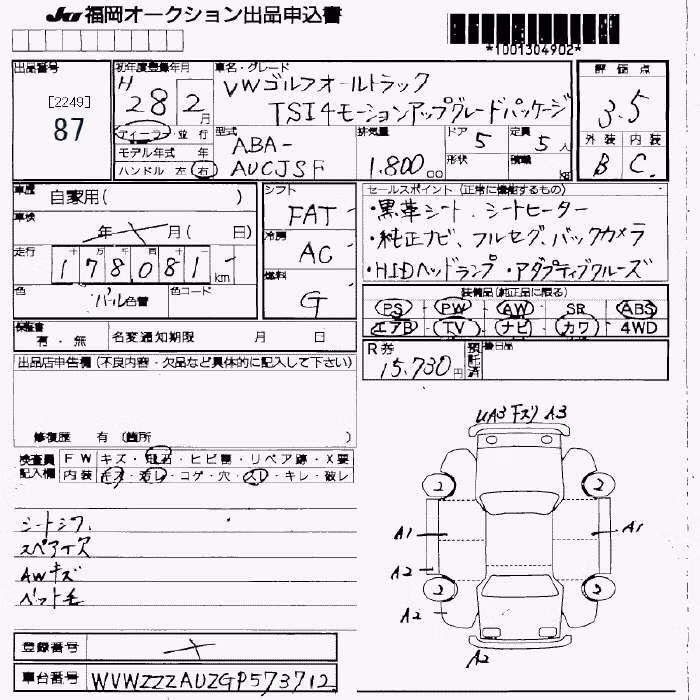 JU 福岡オークション出品申込書
*1001304902*
出品番号
[2249]
87
初年度登録年月
H 28年 2月
車名・グレード
VWゴルフオールトラック
TSI4モーションアップグレードパッケージ
評価点
3.5
外装 内装
B C
ディーラー・並行
モデル年式 年
ハンドル 左 右
型式
ABA-
AUCJSF
排気量
1,800 cc
ドア 5
形状
定員 5人
積載 kg
車歴
自家用( )
車検
年 月( 日)
走行
十 万 千 百 十 一
178081 km
色
パール 色替
色コード
シフト
FAT
冷房
AC
燃料
G
セールスポイント (正常に機能するもの)
・黒革シート、シートヒーター
・純正ナビ、フルセグ、バックカメラ
・HIDヘッドランプ ・アダプティブクルーズ
装備品(純正品に限る)
PS - PW - AW - SR - ABS
エアB - TV - ナビ - カワ - 4WD
保証書
有・無
名変通知期限 月 日
R券
15,730円
預託済
後日品
出品店申告欄(不良内容・欠品など具体的に記入して下さい)
修復歴 有 (箇所 )
検査員記入欄
FW キズ・飛石・ヒビ割・リペア跡・X要
内装 キズ・汚レ・コゲ・穴・スレ・キレ・破レ
シートシワ、
スペアイ欠
AWキズ
ペット毛
UA3 下ズリ A3
2 2
A1 A1
A2
2 2
A2
A2
登録番号
車台番号 WVWZZZAUZGP573712